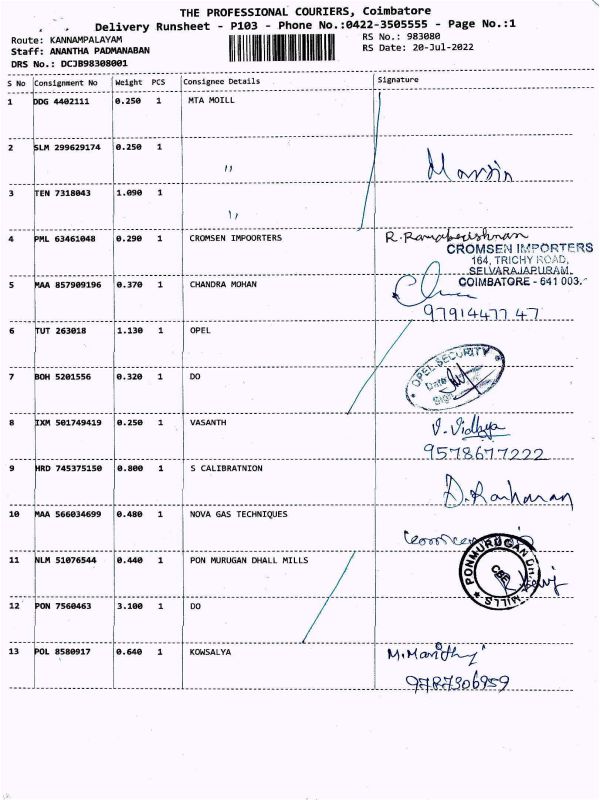 THE PROFESSIONAL COURIERS, Coimbatore
Delivery Runsheet - P103 - Phone No.:0422-3505555 - Page No.:1
Route: KANNAMPALAYAM RS No.: 983080
Staff: ANANTHA PADMANABAN RS Date: 20-Jul-2022
DRS No.: DCJB98308001
S No Consignment No Weight PCS Consignee Details Signature
1 DDG 4402111 0.250 1 MTA MOILL
2 SLM 299629174 0.250 1 ,,
3 TEN 7318043 1.090 1 ,,
4 PML 63461048 0.290 1 CROMSEN IMPOORTERS R. Ramakrishnan
CROMSEN IMPORTERS
164, TRICHY ROAD,
SELVARAJAPURAM,
COIMBATORE - 641 003.
5 MAA 857909196 0.370 1 CHANDRA MOHAN
9791447747
6 TUT 263018 1.130 1 OPEL
OPEL SECURITY
Date
Sign
7 BOH 5201556 0.320 1 DO
8 IXM 501749419 0.250 1 VASANTH V. Vidhya
9578677222
9 HRD 745375150 0.800 1 S CALIBRATNION
10 MAA 566034699 0.480 1 NOVA GAS TECHNIQUES
11 NLM 51076544 0.440 1 PON MURUGAN DHALL MILLS
PONMURUGAN DHALL MILLS
CBE
12 PON 7560463 3.100 1 DO
13 POL 8580917 0.640 1 KOWSALYA
9787306959